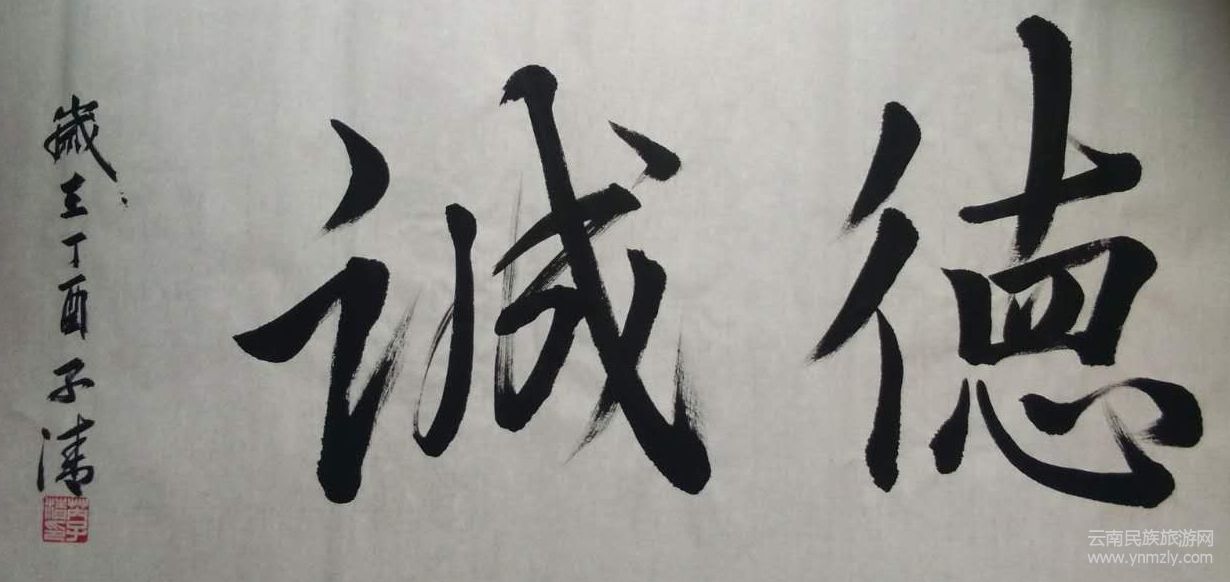 德诚
歲在丁酉子
云南民族旅游网
www.ynmzly.com